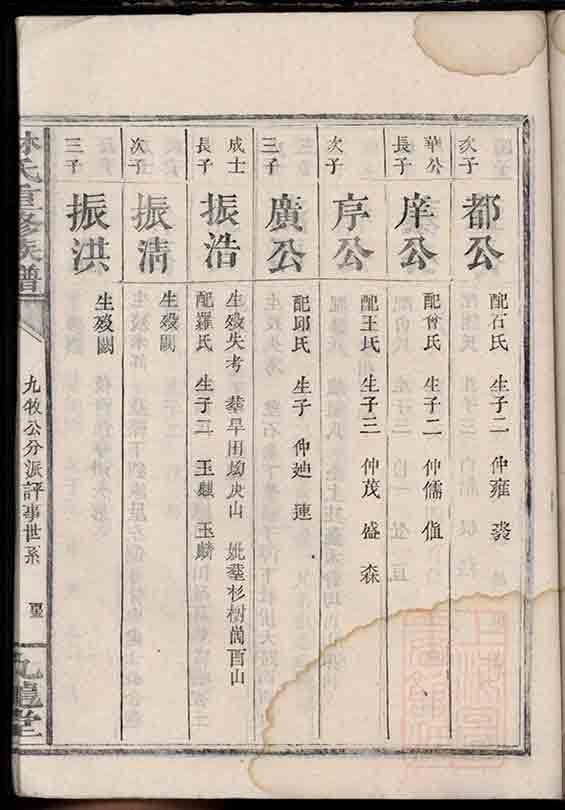 次子
都公
配石氏 生子二 仲雍 裘
華公
長子
庠公
配曾氏 生子二 仲儒 值
次子
序公
配王氏 生子三 仲茂 盛 森
三子
廣公
配邱氏 生子 仲廸 連
成士
長子
振浩
生殁失考 塟早田坳庚山 妣塟杉樹崗酉山
配羅氏 生子二 玉麒 玉麟
次子
振清
生殁闕
三子
振洪
生殁闕
林氏重修族譜
九牧公分派評事世系
九龍堂